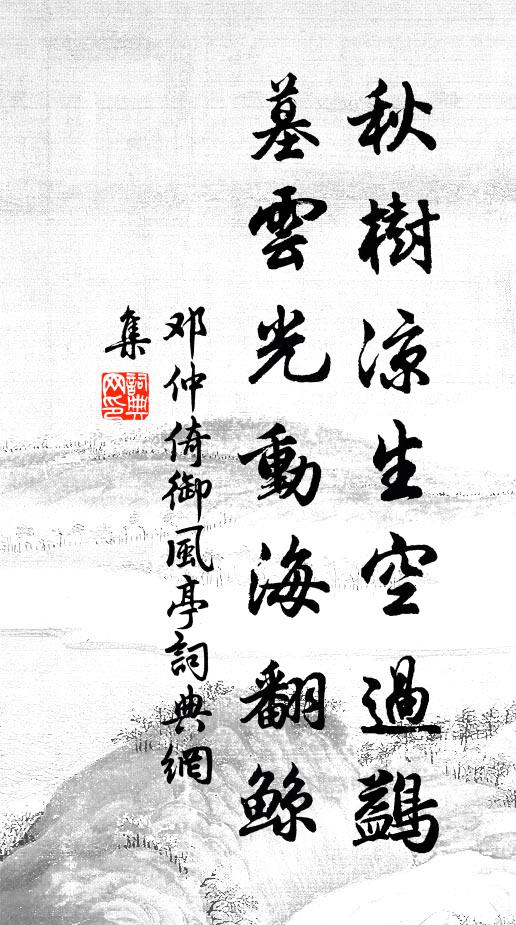 秋樹涼生空過鷁
墓雲光動海翻鯨
邓仲倚御風亭詞典網
集
詞典網印